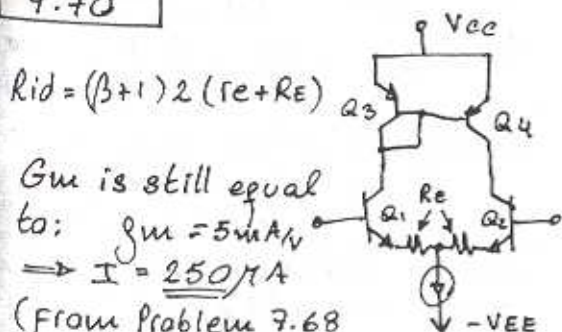 7.70
Vcc
Rid = (β+1) 2 (re+RE)
Q3
Q4
Gm is still equal
to: gm = 5mA/V
Re
Q1
Q2
⟹ I = 250μA
(From Problem 7.68
-VEE